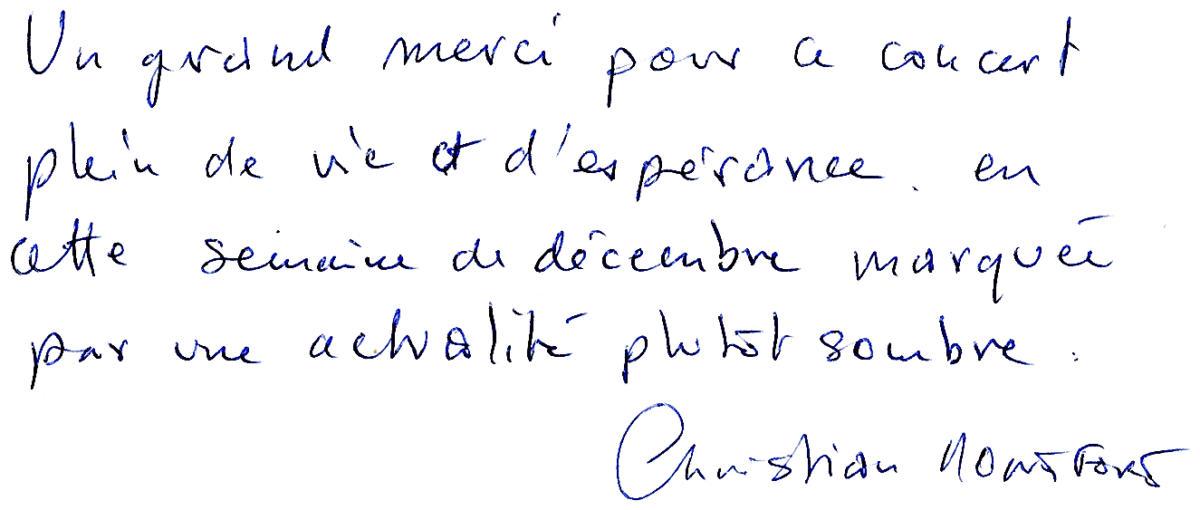 Un grand merci pour ce concert
plein de vie et d'espérance. en
cette semaine de décembre marquée
par une actualité plutôt sombre.
Christian MONTFORT